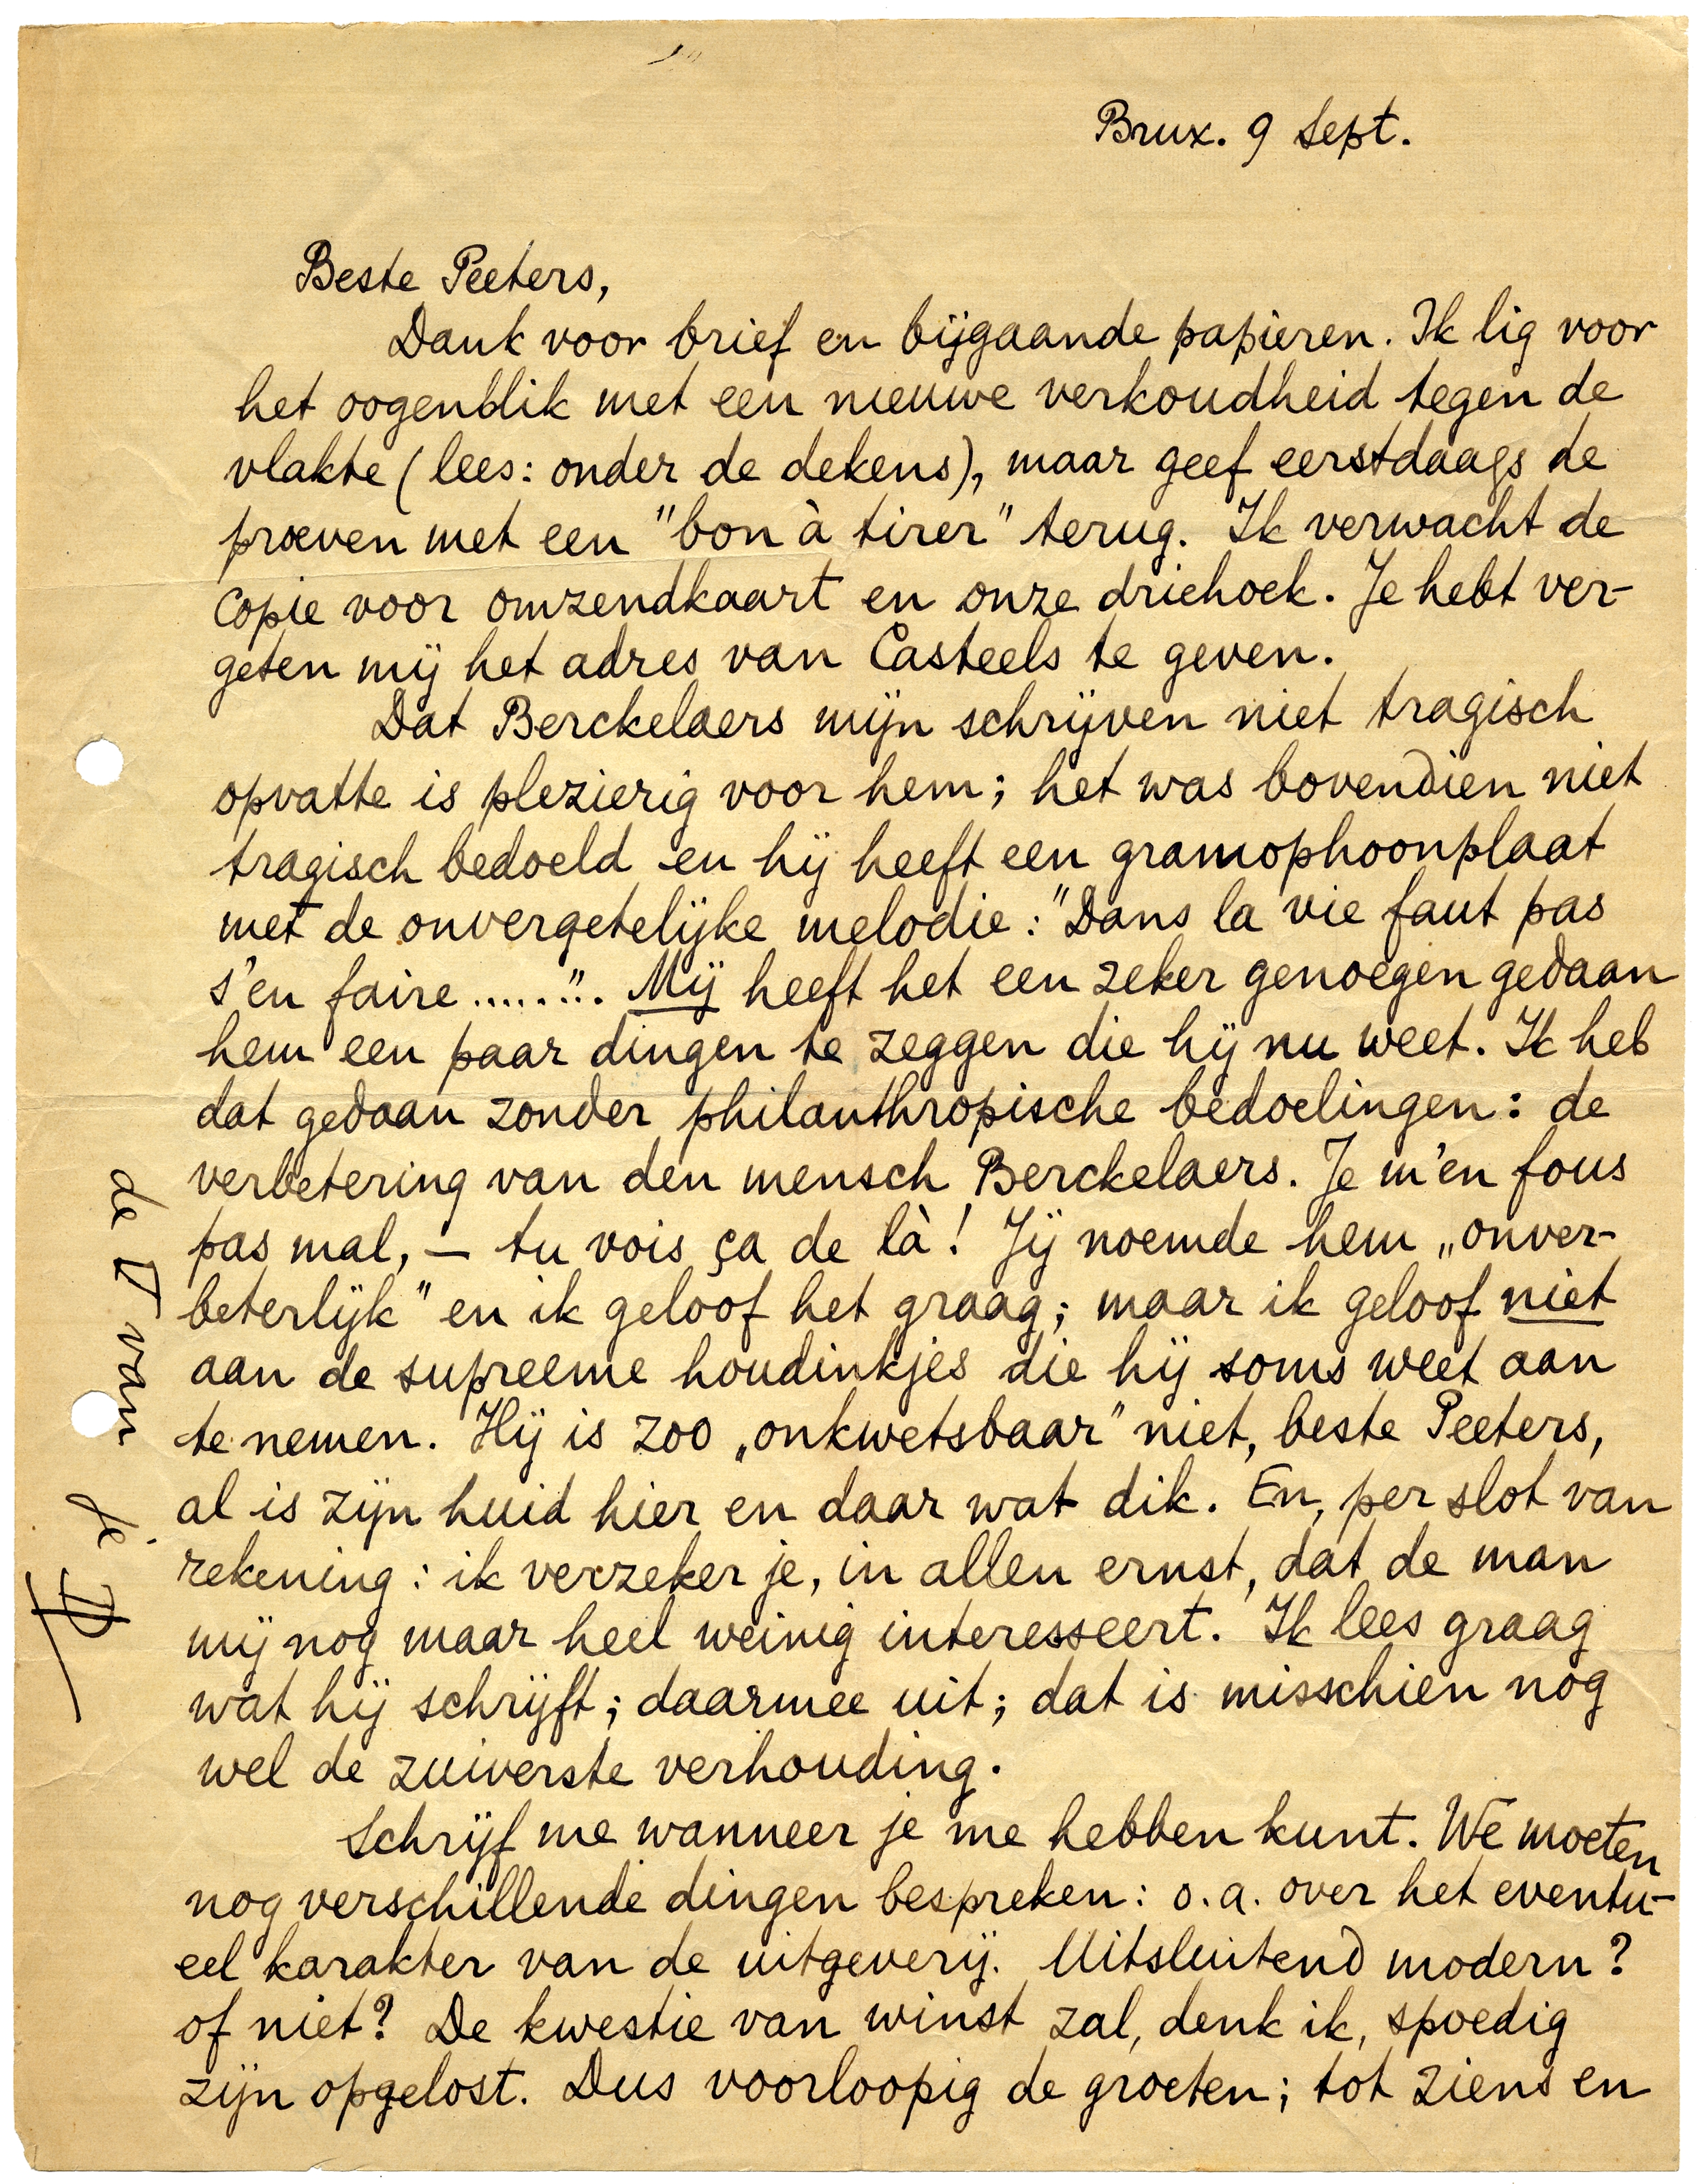 Brux. 9 Sept.
Beste Peeters,
Dank voor brief en bijgaande papieren. Ik lig voor
het oogenblik met een nieuwe verkoudheid tegen de
vlakte (lees: onder de dekens), maar geef eerstdaags de
proeven met een "bon à tirer" terug. Ik verwacht de
copie voor omzendkaart en onze driehoek. Je hebt ver-
geten mij het adres van Casteels te geven.
Dat Berckelaers mijn schrijven niet tragisch
opvatte is plezierig voor hem; het was bovendien niet
tragisch bedoeld en hij heeft een gramophoonplaat
met de onvergetelijke melodie: "Dans la vie faut pas
s'en faire......". Mij heeft het een zeker genoegen gedaan
hem een paar dingen te zeggen die hij nu weet. Ik heb
dat gedaan zonder philanthropische bedoelingen: de
verbetering van den mensch Berckelaers. Je m'en fous
pas mal, — tu vois ça de là! Jij noemde hem „onver-
beterlijk" en ik geloof het graag; maar ik geloof niet
aan de supreeme houdinkjes die hij soms weet aan
te nemen. Hij is zoo „onkwetsbaar" niet, beste Peeters,
al is zijn huid hier en daar wat dik. En, per slot van
rekening: ik verzeker je, in allen ernst, dat de man
mij nog maar heel weinig interesseert. Ik lees graag
wat hij schrijft; daarmee uit; dat is misschien nog
wel de zuiverste verhouding.
Schrijf me wanneer je me hebben kunt. We moeten
nog verschillende dingen bespreken: o.a. over het eventu-
eel karakter van de uitgeverij. Uitsluitend modern?
of niet? De kwestie van winst zal, denk ik, spoedig
zijn opgelost. Dus voorloopig de groeten; tot ziens en
de van je